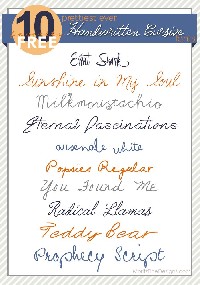 10 prettiest ever
FREE Handwritten Cursive
Fonts
Emily Spark
Sunshine in My Soul
Milkmoustachio
Eternal Fascinations
arsenale white
Popsies Regular
You Found Me
Radical Llamas
Teddy Bear
Prophecy Script